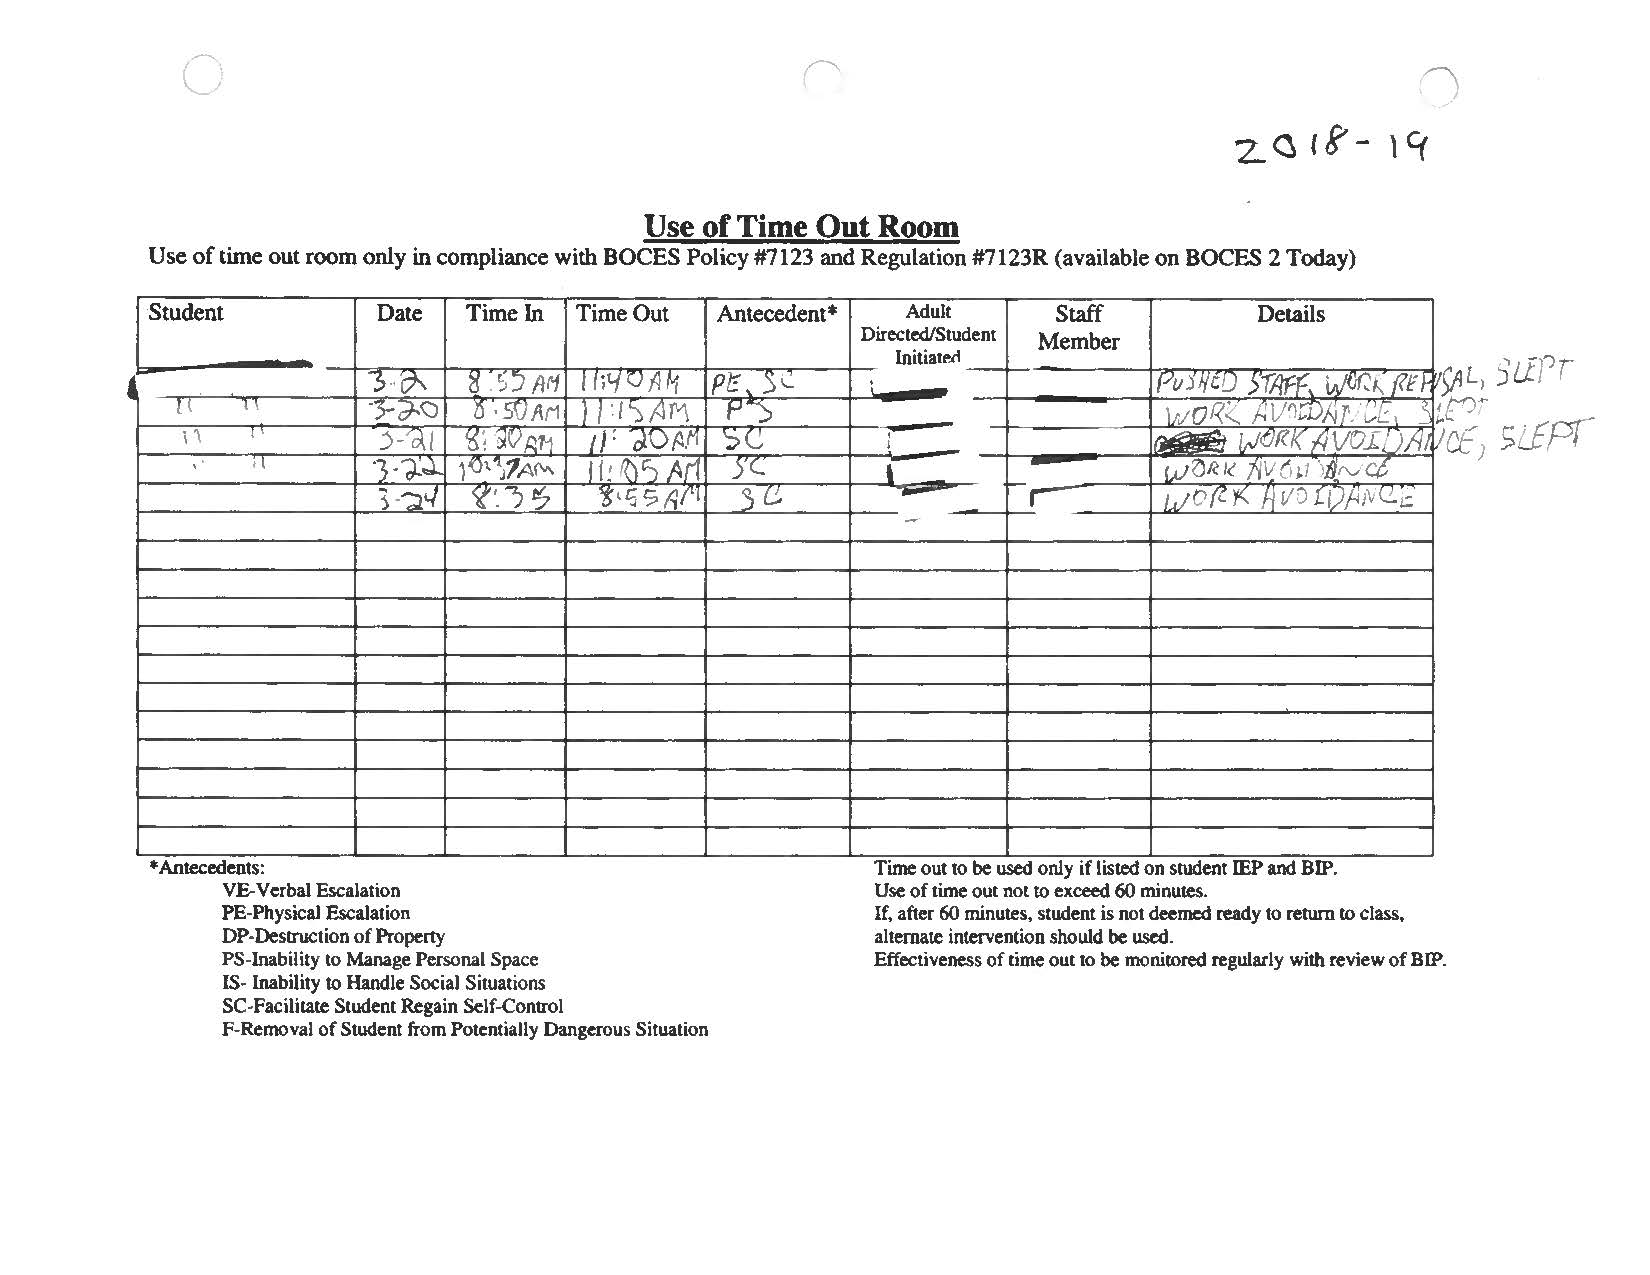 2018-19
Use of Time Out Room
Use of time out room only in compliance with BOCES Policy #7123 and Regulation #7123R (available on BOCES 2 Today)
Student Date Time In Time Out Antecedent* Adult Directed/Student Initiated Staff Member Details
3-2 8:55 AM 11:40 AM PE, SC PUSHED STAFF, WORK REFUSAL, SLEPT
" " 3-20 8:50 AM 11:15 AM PS WORK AVOIDANCE, SLEPT
" " 3-21 8:20 AM 11:20 AM SC WORK AVOIDANCE, SLEPT
" " 3-22 10:37 AM 11:05 AM SC WORK AVOIDANCE
3-24 8:35 8:55 AM SC WORK AVOIDANCE
*Antecedents:
VE-Verbal Escalation
PE-Physical Escalation
DP-Destruction of Property
PS-Inability to Manage Personal Space
IS- Inability to Handle Social Situations
SC-Facilitate Student Regain Self-Control
F-Removal of Student from Potentially Dangerous Situation
Time out to be used only if listed on student IEP and BIP.
Use of time out not to exceed 60 minutes.
If, after 60 minutes, student is not deemed ready to return to class,
alternate intervention should be used.
Effectiveness of time out to be monitored regularly with review of BIP.